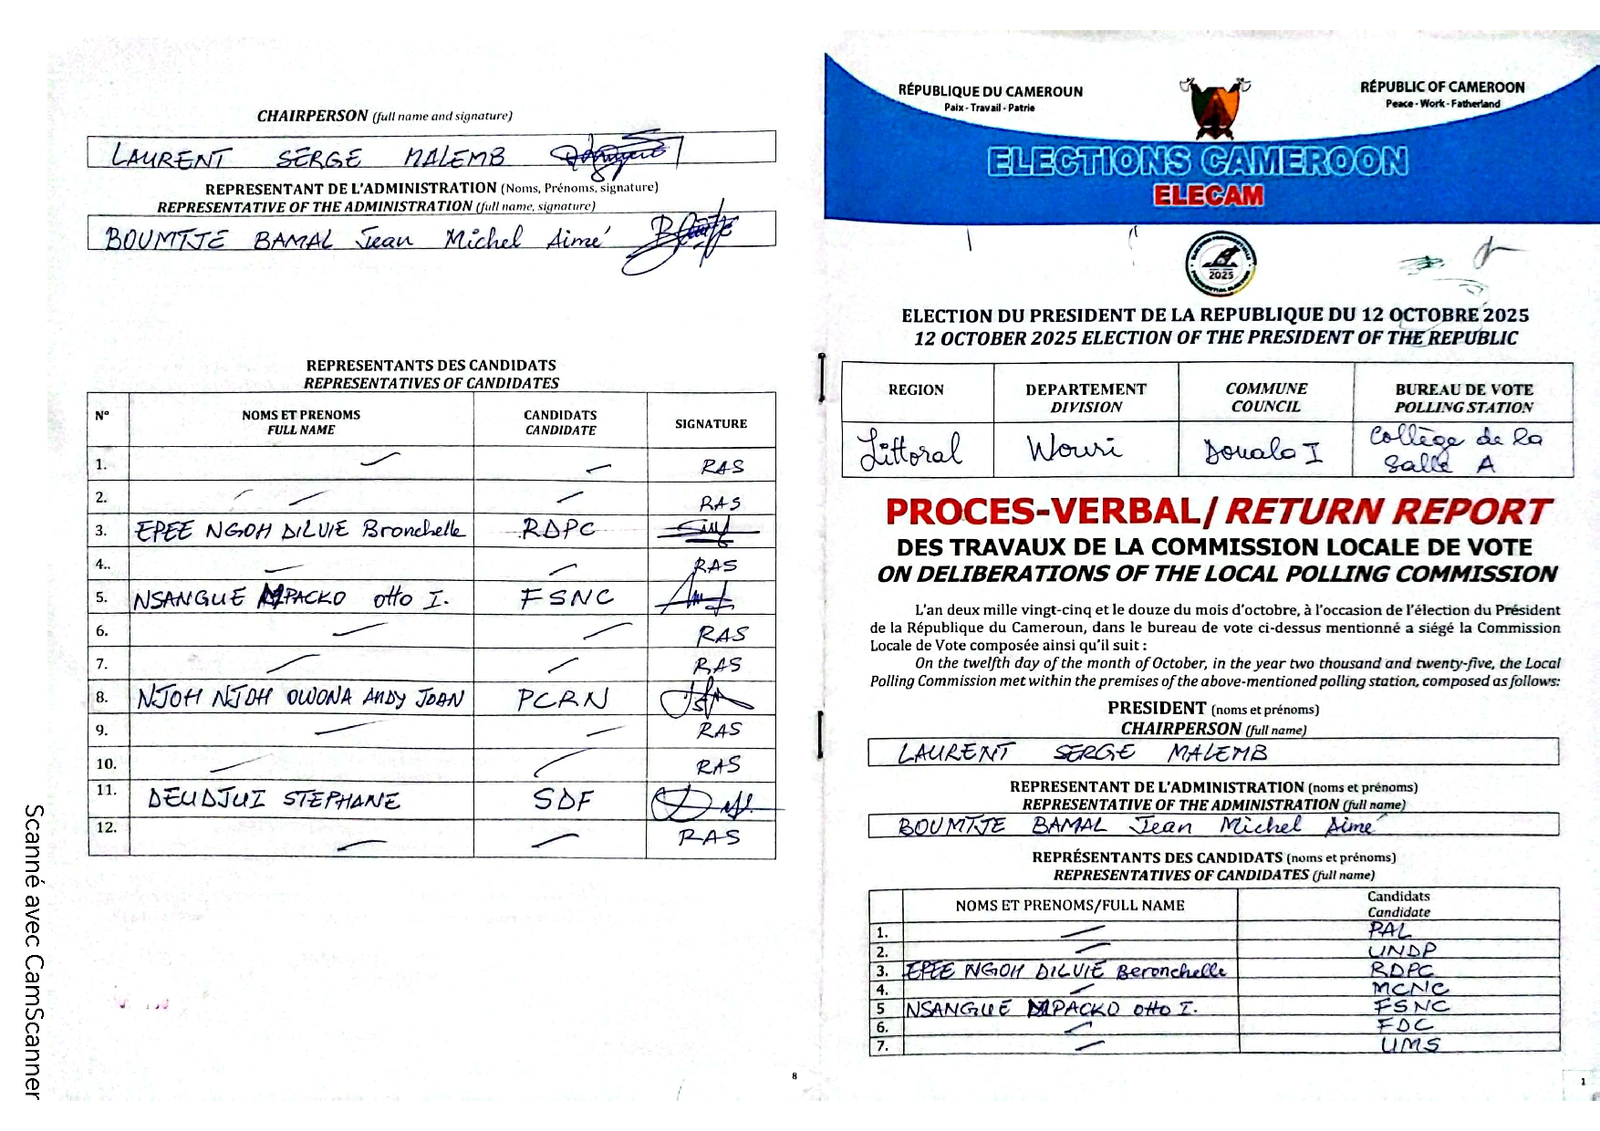 CHAIRPERSON (full name and signature)
LAURENT SERGE MALEMB
REPRESENTANT DE L'ADMINISTRATION (Noms, Prénoms, signature)
REPRESENTATIVE OF THE ADMINISTRATION (full name, signature)
BOUMTJE BAMAL Jean Michel Aimé
REPRESENTANTS DES CANDIDATS
REPRESENTATIVES OF CANDIDATES
N° NOMS ET PRENOMS FULL NAME CANDIDATS CANDIDATE SIGNATURE
1. RAS
2. RAS
3. EPEE NGOH DILUIE Bronchelle RDPC
4.. RAS
5. NSANGUE MPACKO Otto I. FSNC
6. RAS
7. RAS
8. NJOH NJOH OWONA ANDY JOAN PCRN
9. RAS
10. RAS
11. DEUDJUI STEPHANE SDF
12. RAS
8
Scanné avec CamScanner
RÉPUBLIQUE DU CAMEROUN
Paix - Travail - Patrie
RÉPUBLIC OF CAMEROON
Peace - Work - Fatherland
ELECTIONS CAMEROON
ELECAM
2025
ELECTION DU PRESIDENT DE LA REPUBLIQUE DU 12 OCTOBRE 2025
12 OCTOBER 2025 ELECTION OF THE PRESIDENT OF THE REPUBLIC
REGION DEPARTEMENT DIVISION COMMUNE COUNCIL BUREAU DE VOTE POLLING STATION
Littoral Wouri Douala I Collège de la Salle A
PROCES-VERBAL/ RETURN REPORT
DES TRAVAUX DE LA COMMISSION LOCALE DE VOTE
ON DELIBERATIONS OF THE LOCAL POLLING COMMISSION
L'an deux mille vingt-cinq et le douze du mois d'octobre, à l'occasion de l'élection du Président
de la République du Cameroun, dans le bureau de vote ci-dessus mentionné a siégé la Commission
Locale de Vote composée ainsi qu'il suit :
On the twelfth day of the month of October, in the year two thousand and twenty-five, the Local
Polling Commission met within the premises of the above-mentioned polling station, composed as follows:
PRESIDENT (noms et prénoms)
CHAIRPERSON (full name)
LAURENT SERGE MALEMB
REPRESENTANT DE L'ADMINISTRATION (noms et prénoms)
REPRESENTATIVE OF THE ADMINISTRATION (full name)
BOUMTJE BAMAL Jean Michel Aimé
REPRÉSENTANTS DES CANDIDATS (noms et prénoms)
REPRESENTATIVES OF CANDIDATES (full name)
NOMS ET PRENOMS/FULL NAME Candidats Candidate
1. PAL
2. UNDP
3. EPEE NGOH DILUIE Beronchelle RDPC
4. MCNC
5 NSANGUE MPACKO Otto I. FSNC
6. FDC
7. UMS
1